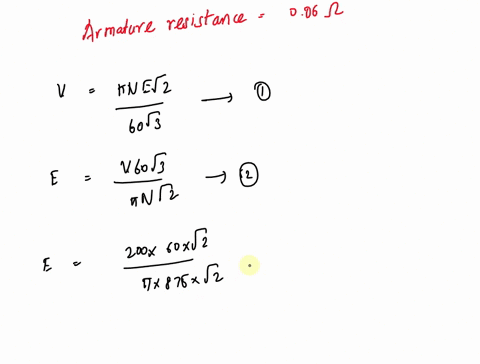 Armature resistance = 0.06 Ω
V = πNE√2 / 60√3 → ①
E = V60√3 / πN√2 → ②
E = 200 x 60 x √2 / π x 875 x √2